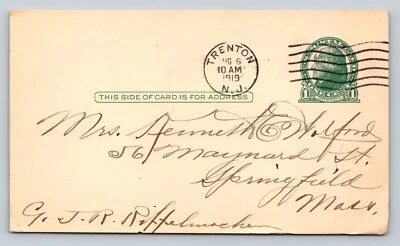 TRENTON
AUG 6
10 AM
1919
N. J.
1 1
THIS SIDE OF CARD IS FOR ADDRESS
Mrs. Kenneth E. Holford
56 Maynard St.
Springfield
Mass.
G. J. R.